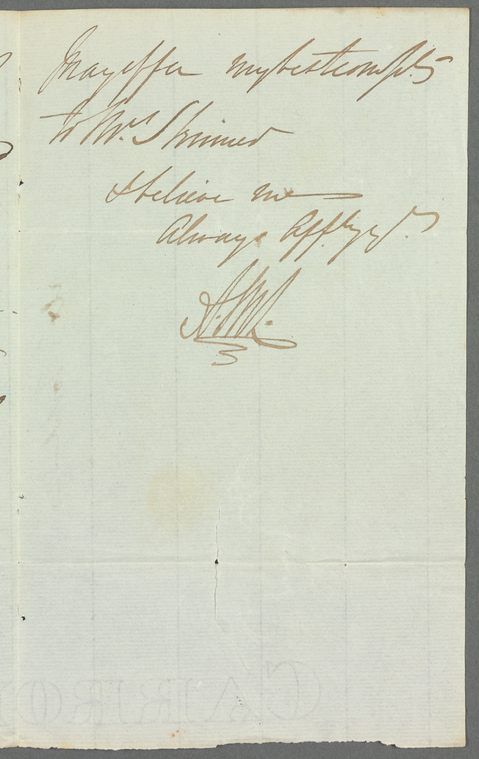 May offer my best compts
to Mrs Skinner
& believe me
Always Affly yrs